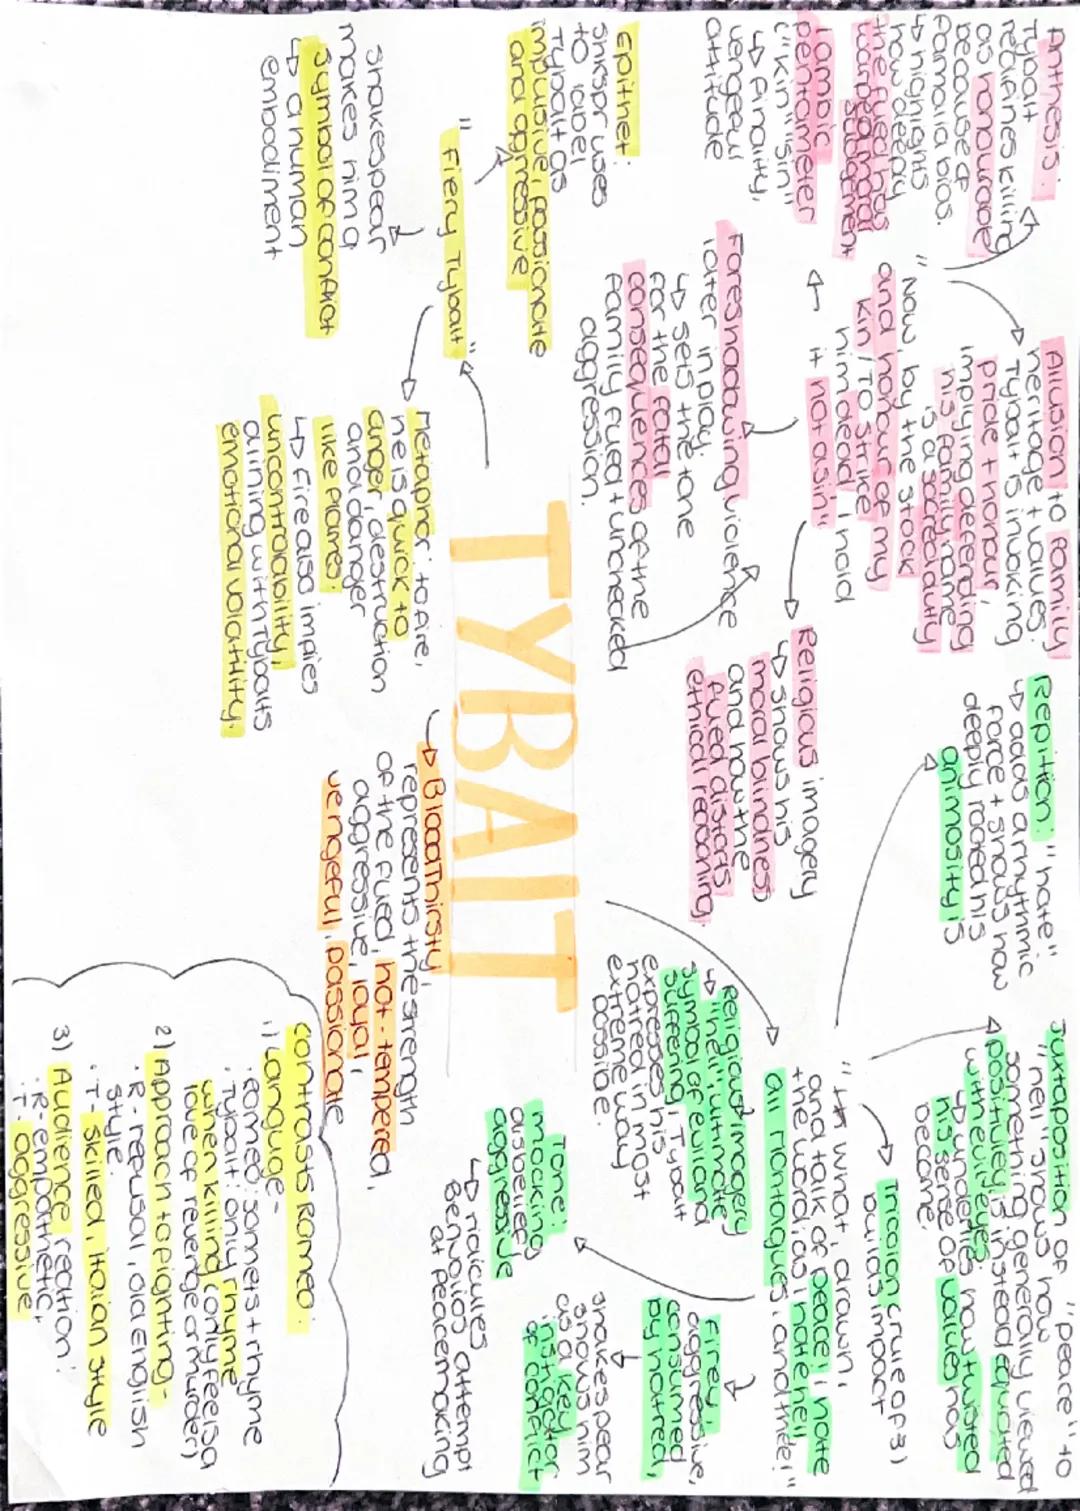 Antithesis:
Tybalt
redifines killing
as honourable
because of
familial bias.
↳ highlights
how deeply
the fued has
warped moral
judgement
iambic
pentameter
("kin" "sin"
↳ finality,
vengeful
attitude
Allusion to family
heritage + values.
Tybalt is invoking
pride + honour,
implying defending
his family name
is a sacred duty
"Now, by the stock
and honour of my
kin, / To strike
him dead I hold
it not a sin"
Foreshadowing violence
later in play.
↳ sets the tone
for the fatal
consequences of the
family fued + unchecked
aggression.
Religious imagery
↳ shows his
moral blindness
and how the
fued distorts
ethical reasoning.
Repitition: "hate"
↳ adds a rhythmic
force + shows how
deeply rooted his
animosity is
Juxtaposition of "peace" to
"hell" shows how
something generally viewed
positively is instead equated
with evil.
↳ undelies how twisted
his sense of values has
become.
"What, drawn,
and talk of peace! I hate
the word, as I hate hell
all montagues, and thee!"
Tricolon (rule of 3)
builds impact
Religious imagery
↳ "hell": ultimate
symbol of evil and
suffering, Tybalt
expresses his
hatred in most
extreme way
possible.
Tone:
mocking
disbelief,
aggressive
↳ ridicules
Benvolios attempt
at peacemaking
Firey,
aggressive,
consumed
by hatred,
shakespear
shows him
as a key
instigator
of conflict
TYBALT
Epithet:
Shkspr uses
to label
Tybalt as
impulsive, passionate
and aggressive
"Fiery Tybalt"
shakespear
makes him a
symbol of conflict
↳ a human
embodiment
Metaphor: to fire,
he is quick to
anger, destruction
and danger
like flames.
↳ fire also implies
uncontrolability,
alining with Tybalts
emotional volatility.
↳ BloodThirsty,
represents the strength
of the fued, hot-tempered,
aggressive, loyal,
vengeful, passionate
contrasts Romeo:
1) Languge -
· Romeo: sonnets + rhyme
· Tybalt: only rhyme
when killing (only feels a
love of revenge or murder)
2) Approach to fighting -
· R - refusal, old English
style.
· T - skilled, italian style
3) Audience reation:
· R - empathetic,
· T - aggressive